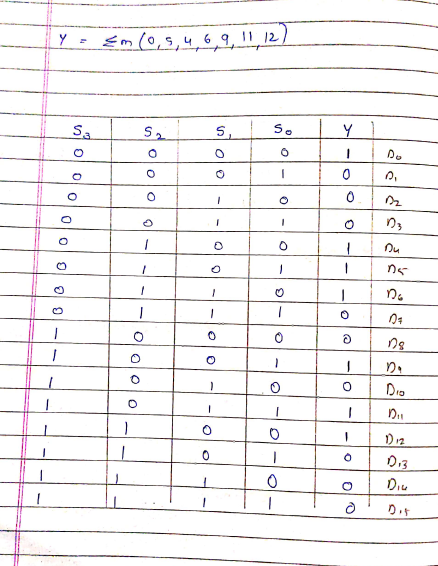 Y = Σm(0,5,4,6,9,11,12)
S3 S2 S1 S0 Y
0 0 0 0 1 D0
0 0 0 1 0 D1
0 0 1 0 0 D2
0 0 1 1 0 D3
0 1 0 0 1 D4
0 1 0 1 1 D5
0 1 1 0 1 D6
0 1 1 1 0 D7
1 0 0 0 0 D8
1 0 0 1 1 D9
1 0 1 0 0 D10
1 0 1 1 1 D11
1 1 0 0 1 D12
1 1 0 1 0 D13
1 1 1 0 0 D14
1 1 1 1 0 D15